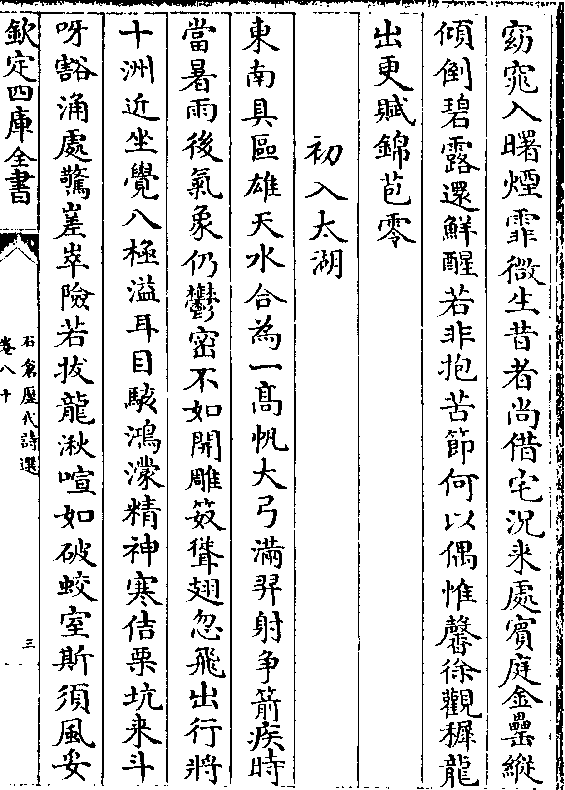 窈窕入曙煙霏微生昔者尚借宅況来處賓庭金罍縱
傾倒碧露還鮮醒若非抱苦節何以偶惟馨徐觀穉龍
出更賦錦苞零
初入太湖
東南具區雄天水合為一高帆大弓滿羿射争箭疾時
當暑雨後氣象仍鬱密不如開雕笯聳翅忽飛出行將
十洲近坐覺八極溢耳目駭鴻濛精神寒佶栗坑来斗
呀豁涌處驚嵳崒險若拔龍湫喧如破蛟室斯須風妥
欽定四庫全書
石倉歷代詩選
卷八十
三